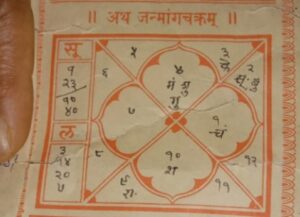 ॥ अथ जन्मांगचक्रम् ॥
सू
१
२३
१०
४०
ल
३
१४
२०
५
५
३
६
४
२
मं शु
गु
७
१
चं
८
१०
श
१२
९
रा
११